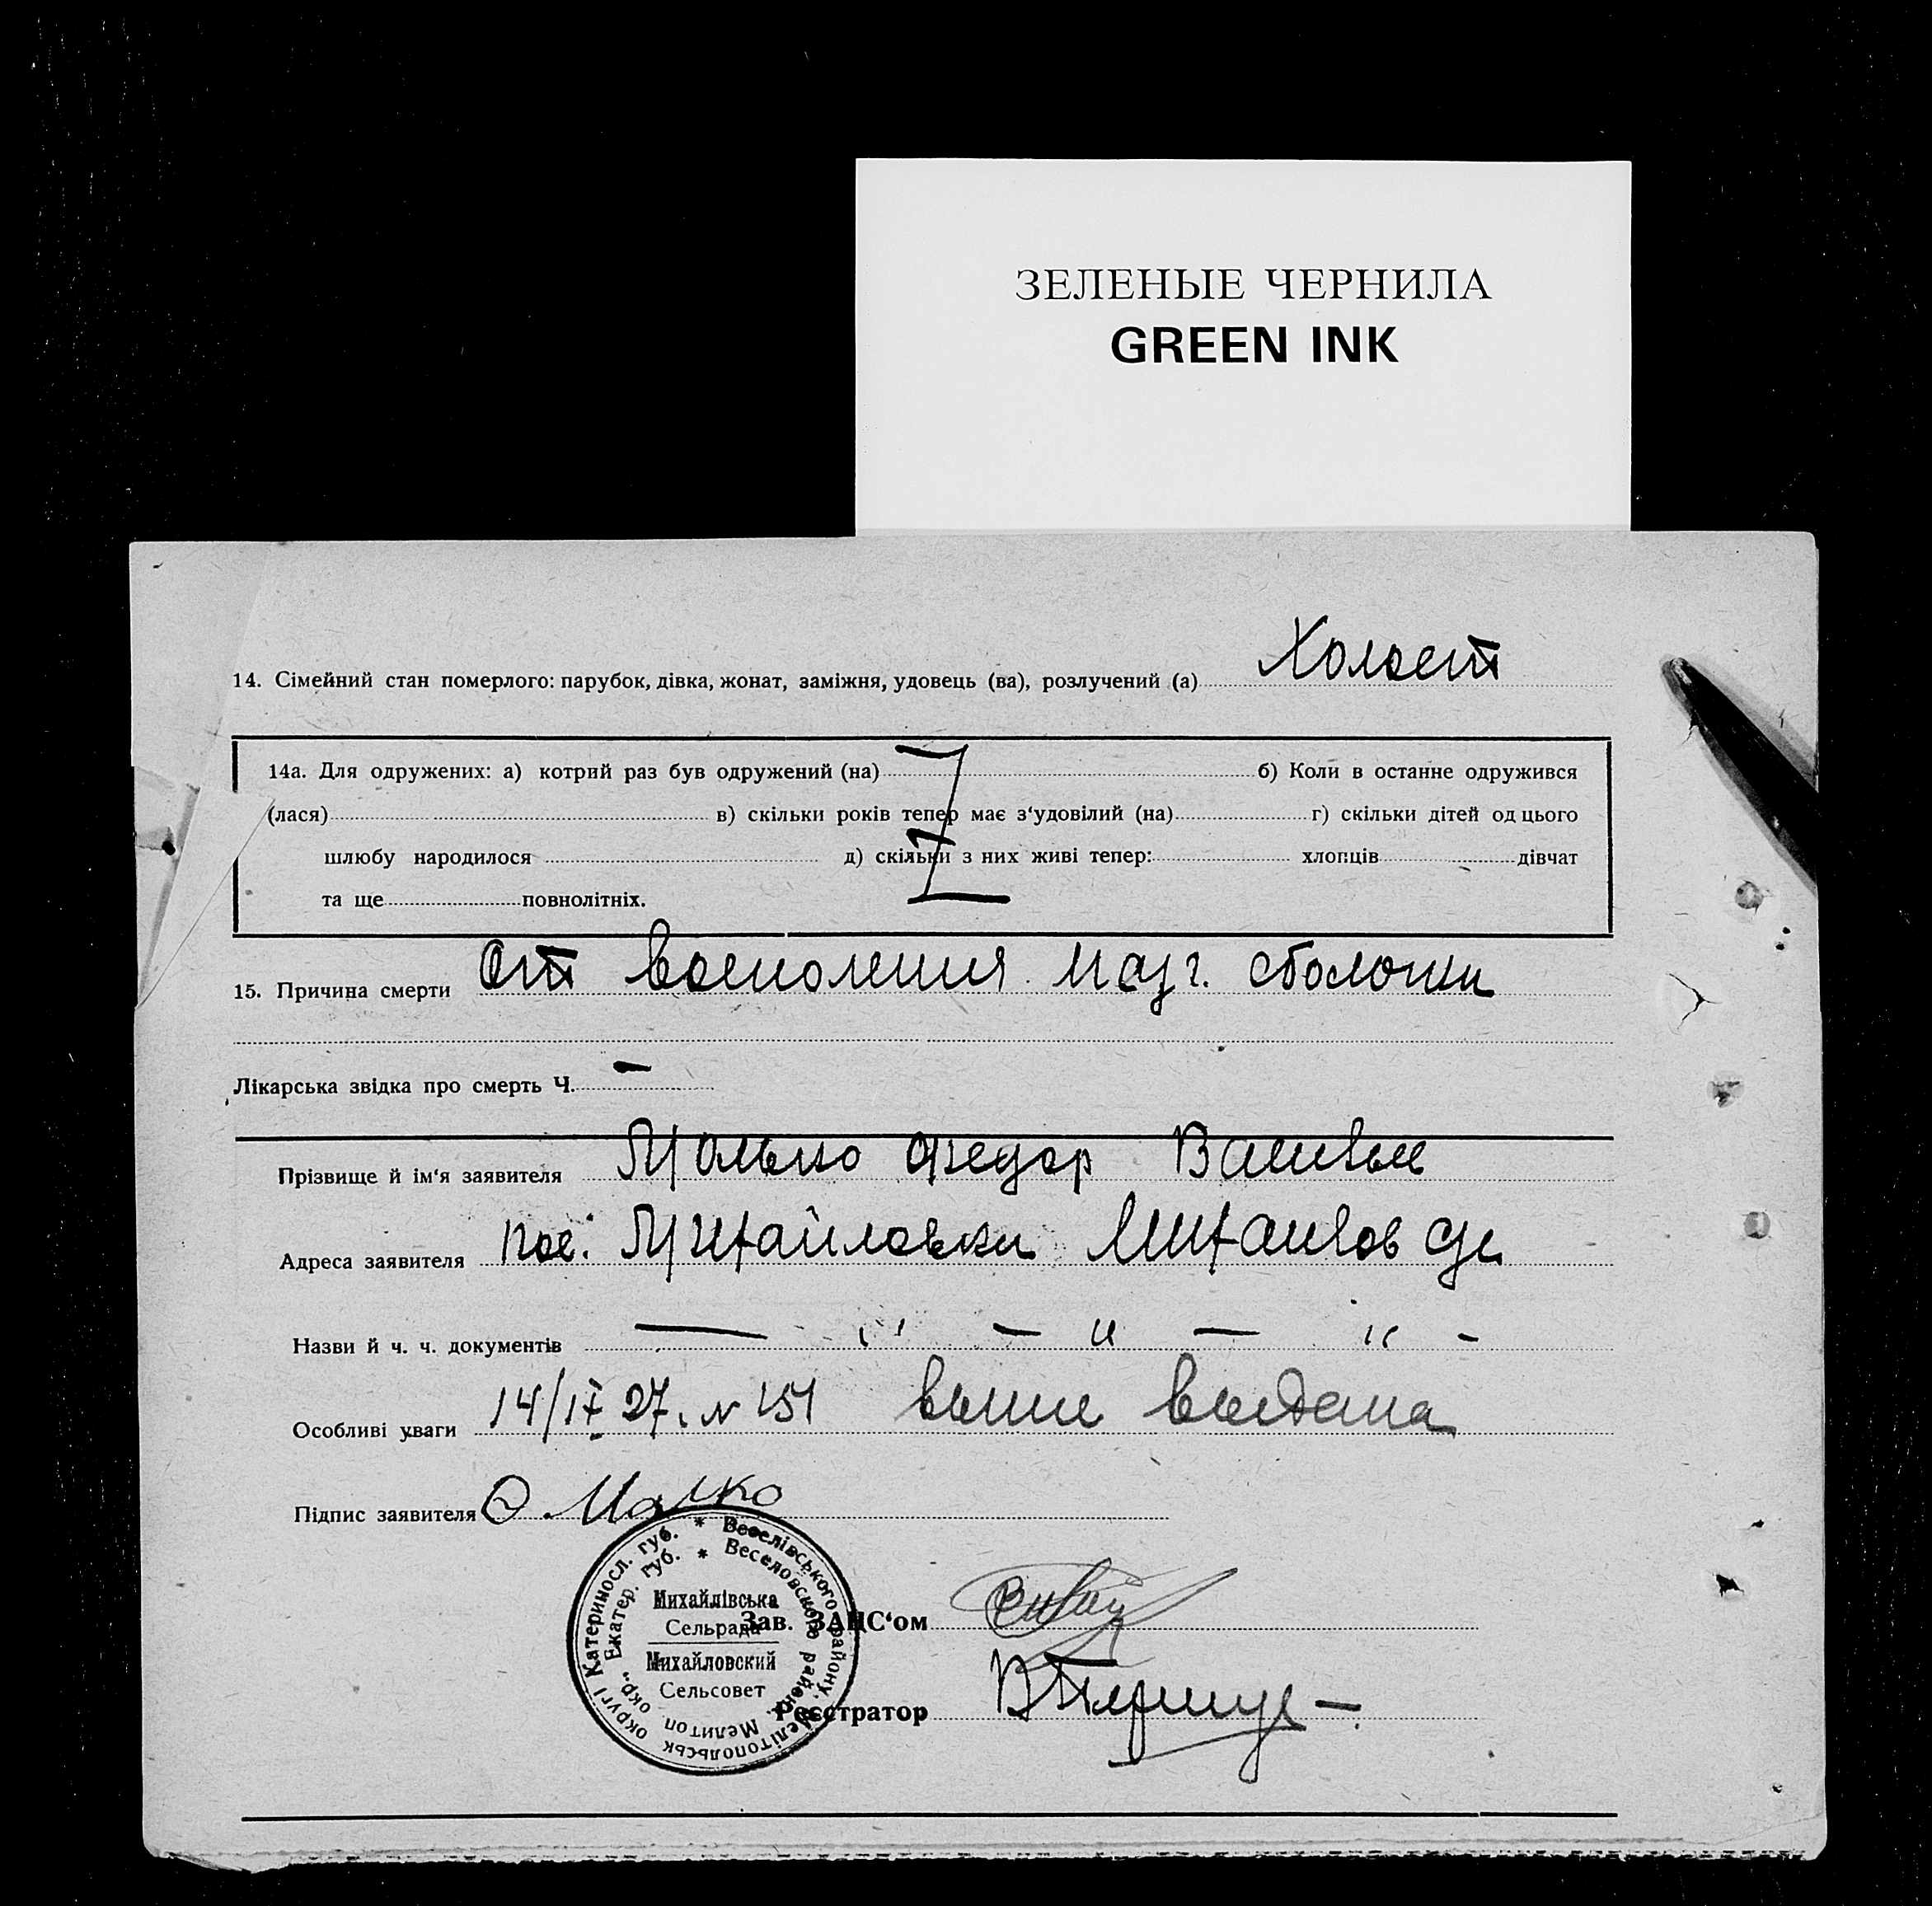 ЗЕЛЕНЫЕ ЧЕРНИЛА
GREEN INK
14. Сімейний стан померлого: парубок, дівка, жонат, заміжня, удовець (ва), розлучений (а) Холост
14а. Для одружених: а) котрий раз був одружений (на) б) Коли в останнє одружився
(лася) в) скільки років тепер має з‘удовілий (на) г) скільки дітей од цього
шлюбу народилося д) скільки з них живі тепер: хлопців дівчат
та ще повнолітніх.
15. Причина смерти От восполения мозг. оболочки
Лікарська звідка про смерть Ч. —
Прізвище й ім‘я заявителя Малько Федор
Адреса заявителя пос. Михайловки Михайлов с/с
Назви й ч. ч. документів — " — " — " —
Особливі уваги 14/IX 27. N 151 выдана
Підпис заявителя Ѳ Малко
Веселівського району, Мелітопольськ округі Катериносл. губ. *
Веселовского района, Мелитоп. окр., Екатер. губ. *
Михайлівська
Сельрада
Михайловский
Сельсовет
Зав. ЗАЦС‘ом
Реєстратор